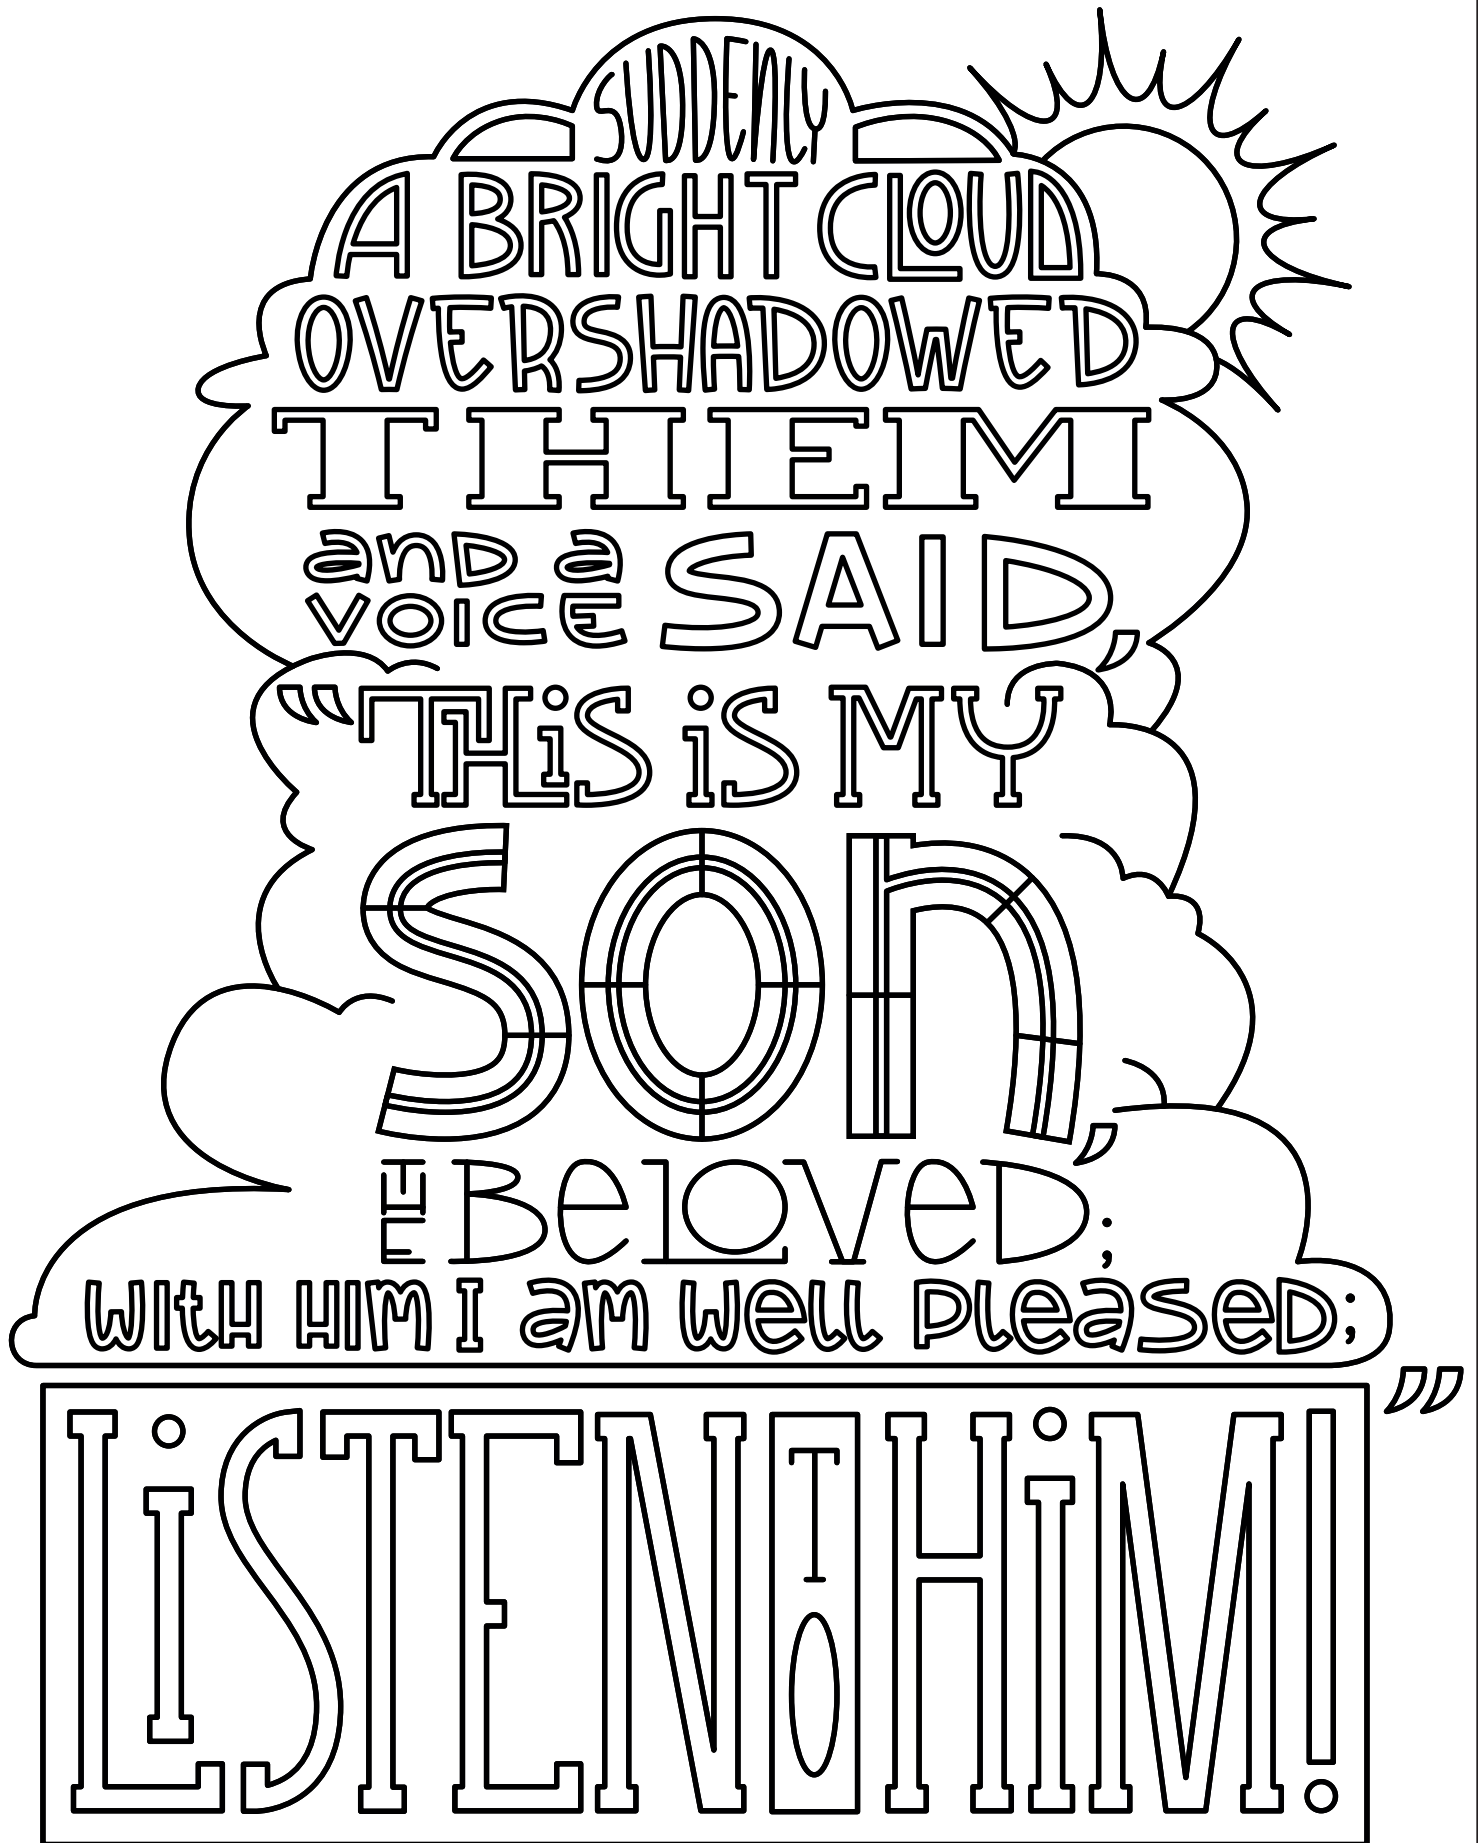 SUDDENLY
A BRIGHT CLOUD
OVERSHADOWED
THEM
and a
voice SAID,
“THiS iS MY
Son,
THE BeLOVeD;
with HIM I am well pleased;
LiSTEN TO HiM!”